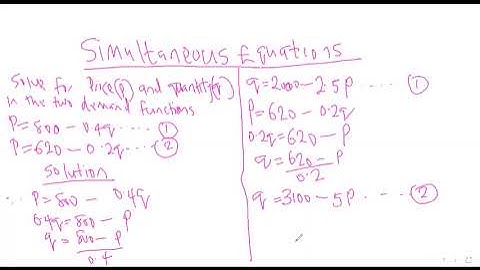 Simultaneous Equations
Solve for Price(p) and quantity(q)
in the two demand functions
P=800 - 0.4q ..... ①
P=620 - 0.2q ..... ②
solution
P=800 - 0.4q
0.4q=800 - P
q = 800 - P
0.4
q=2000-2.5P .... ①
P=620-0.2q
0.2q=620-P
q = 620-P
0.2
q=3100-5P .... ②